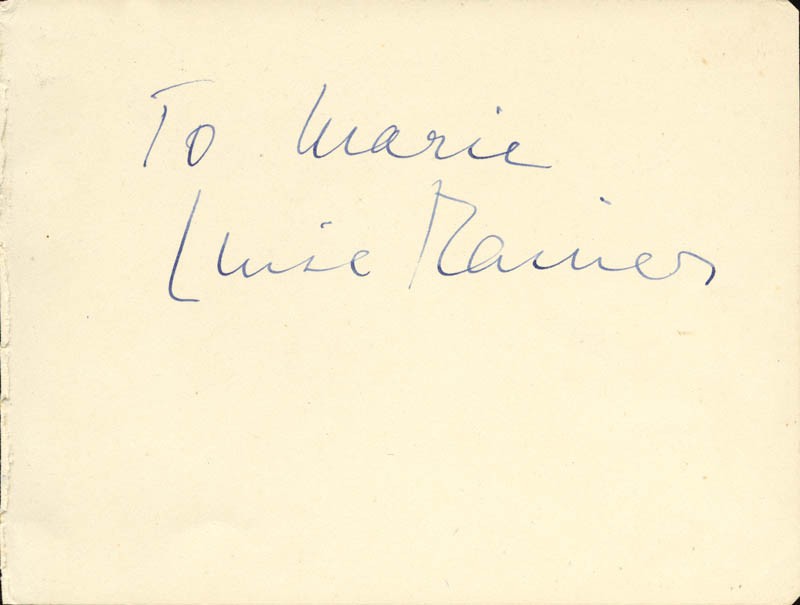 To Marie
Luise Rainer